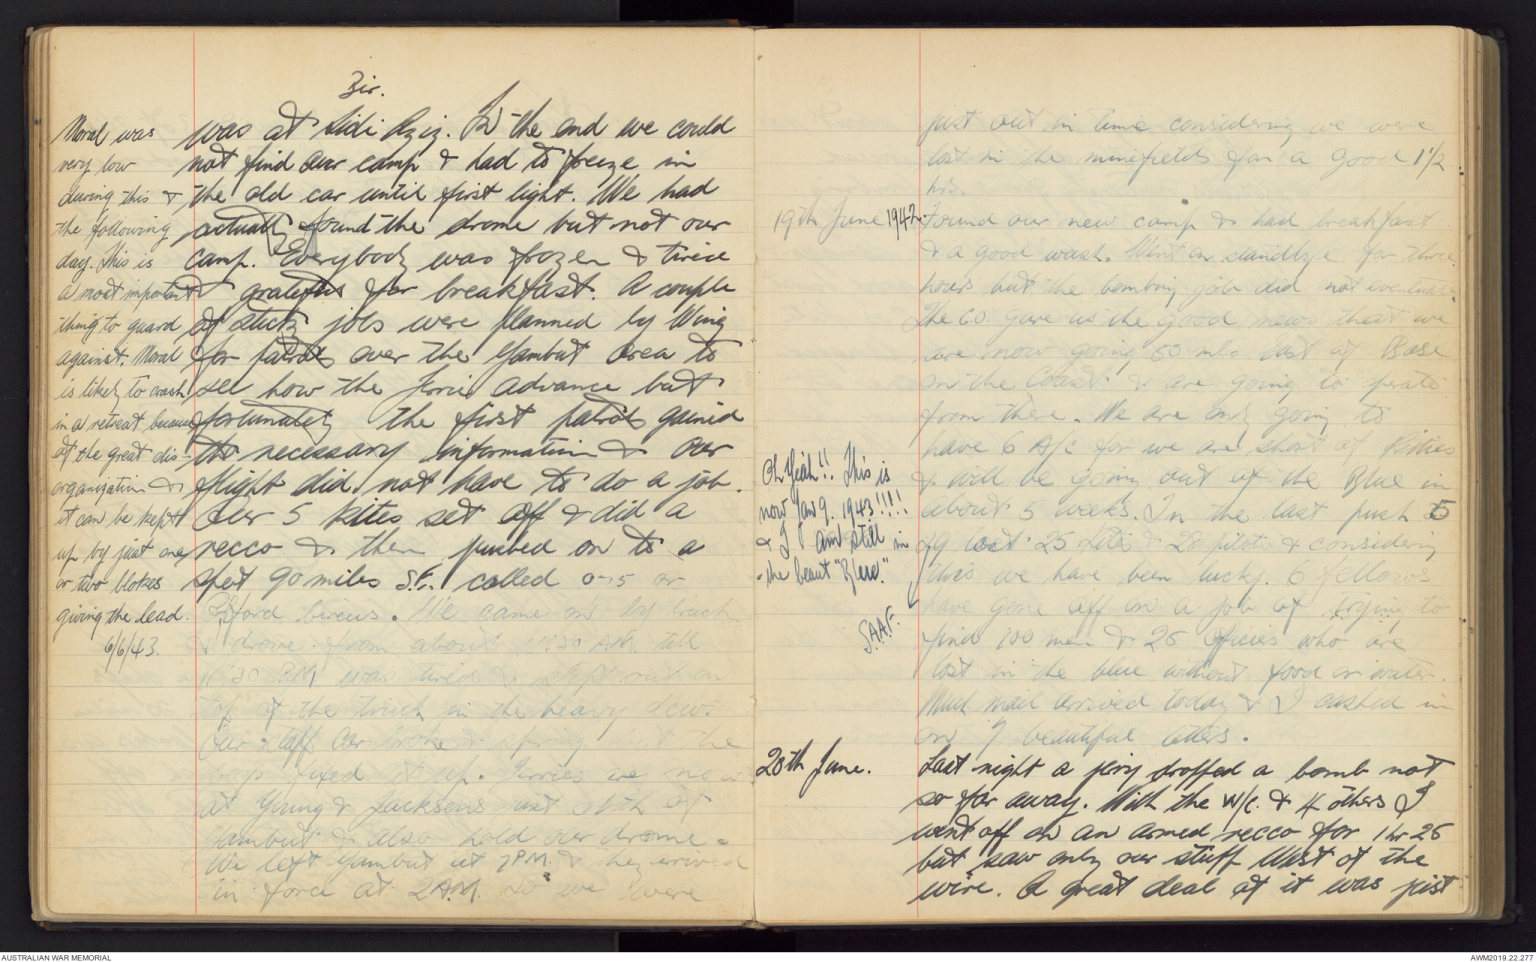 Zir.
was at Sidi Aziz. In the end we could
not find our camp & had to freeze in
the old car until first light. We had
actually found the drome but not our
camp. Everybody was frozen & tired
& grateful for breakfast. A couple
of sticky jobs were planned by Wing
for patrols over the Gambut area to
see how the Jerrie advance but
fortunately the first patrols gained
the necessary information & our
flight did not have to do a job.
Our 5 kites set off & did a
recco & then pushed on to a
spot 90 miles S.E. called 075 or
Circus. We came on by truck
& drove from about 11:30 AM. till
11:30 PM was tired & slept out on
top of the truck in the heavy dew.
Our staff car broke a spring the
boys fixed it up. Jerries are now
at Young & Jacksons just Sth of
Gambut & also hold our drome.
We left Gambut at 7PM. & they arrived
in force at 2A.M. so we were
Moral was
very low
during this &
the following
day. This is
a most important
thing to guard
against. Moral
is likely to crash
in a retreat because
of the great dis-
organization &
it can be kept
up by just one
or two blokes
giving the lead.
6/6/43.
just out in time considering we were
lost in the minefields for a good 1 1/2
hrs.
19th June 1942. Found our new camp & had breakfast
& a good wash. Went on standbye for three
hours but the bombing job did not eventuate.
The C.O. gave us the good news that we
are now going 60 mls east of Base
on the Coast & are going to operate
from there. We are only going to
have 6 A/C for we are short of kities
& will be going out of the Blue in
about 5 weeks. In the last push 5
of 9 lost 25 kites & 28 pilots & considering
this we have been lucky. 6 fellows
have gone off on a job of trying to
find 100 men & 25 officers who are
lost in the blue without food or water.
Much mail arrived today & I cashed in
on 7 beautiful letters.
Oh Yeah!! This is
now Jan 9. 1943!!!!
& I am still in
the beaut "Blue."
S.A.A.F.
20th June. Last night a jerry dropped a bomb not
so far away. With the W/C. & 4 others I
went off on an armed recco for 1 hr 25
but saw only our stuff West of the
wire. A great deal of it was just
AUSTRALIAN WAR MEMORIAL
AWM2019.22.277